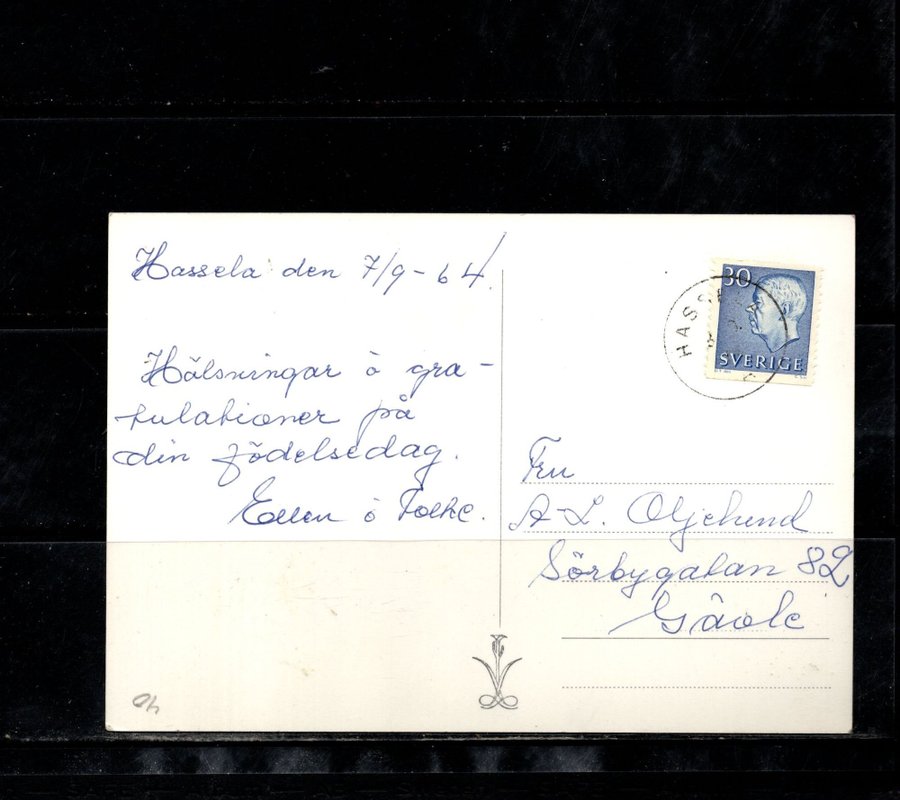 Hassela den 7/9-64.
Hälsningar å gra-
tulationer på
din födelsedag.
Ellen å Folke.
30
SVERIGE
HASSELA
Fru
A-L. Oljelund
Sörbygatan 82
Gävle